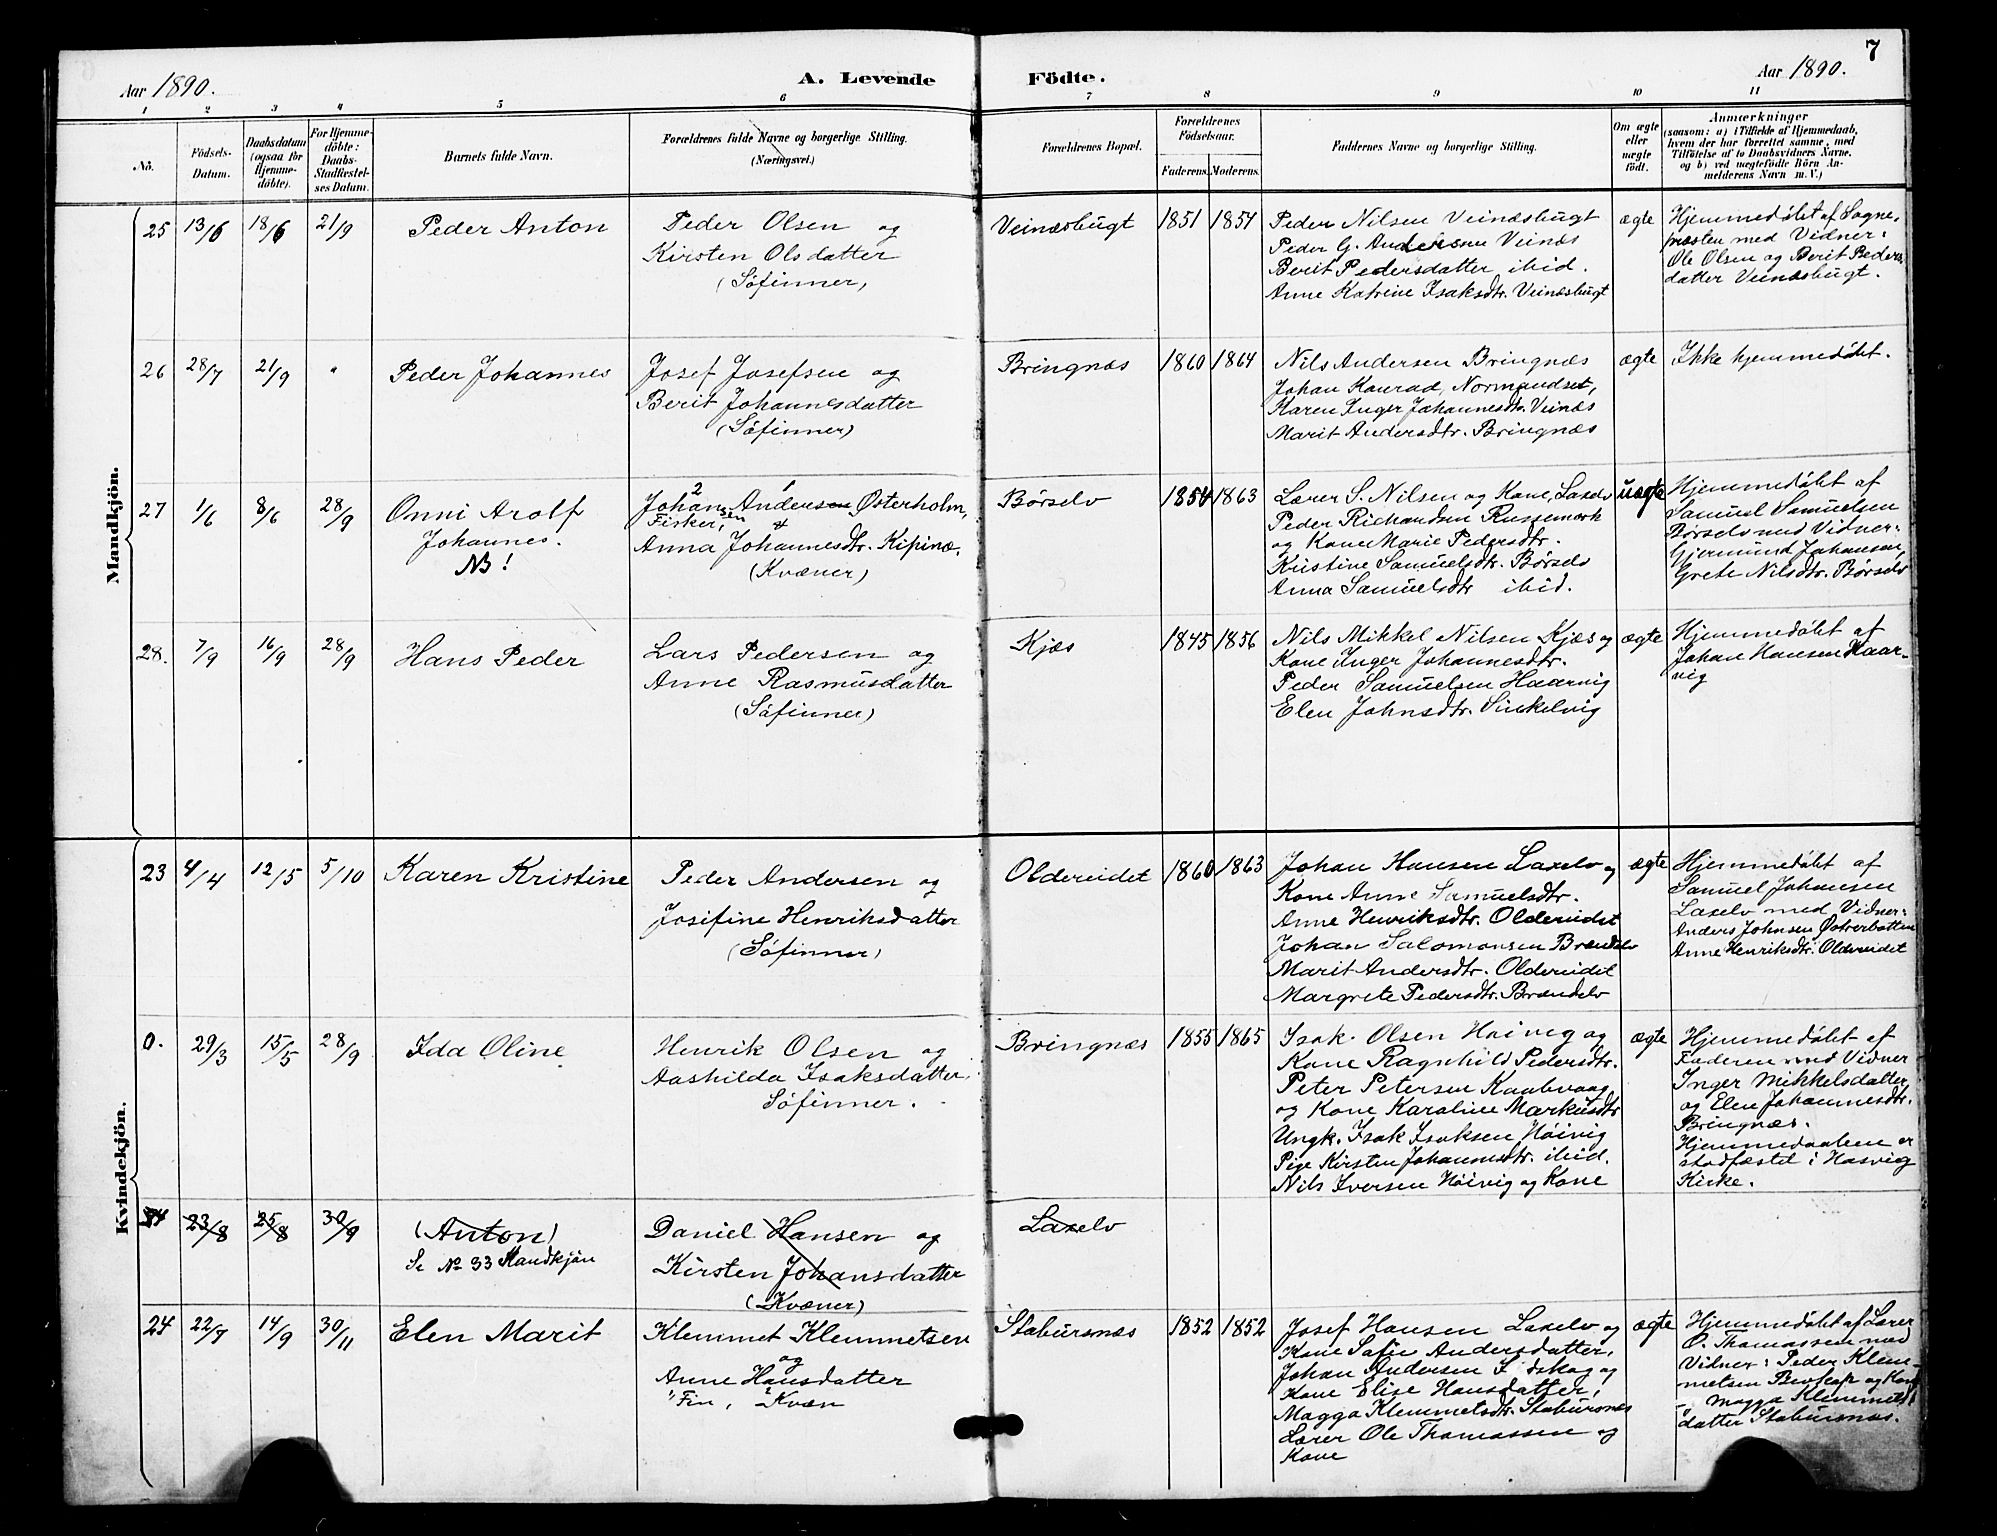 7
Aar 1890.
A. Levende Födte.
Aar 1890.
1 2 3 4 5 6 7 8 9 10 11
No.
Födsels-
Datum.
Daabsdatum
(ogsaa for
Hjemme-
döbte).
For Hjemme-
döbte:
Daabs-
Stadfæstel-
ses Datum.
Barnets fulde Navn.
Forældrenes fulde Navne og borgerlige Stilling.
(Næringsvei.)
Forældrenes Bopæl.
Forældrenes
Födselsaar.
Faderens. Moderens.
Faddernes Navne og borgerlige Stilling.
Om ægte
eller
uægte
födt.
Anmærkninger
(saasom: a) i Tilfælde af Hjemmedaab,
hvem der har forrettet samme, med
Tilföielse af to Daabsvidners Navne,
og b) ved uægtefödte Börn An-
melderens Navn m. V.)
Mandkjön.
25 13/6 18/6 21/9
Peder Anton
Peder Olsen og
Kirsten Olsdatter
(Söfinner)
Veinæsbugt
1851 1854
Peder Nilsen Veinæsbugt
Peder G. Andersen Veinæs
Berit Pedersdatter ibid.
Anne Katrine Isaksdtr. Veinæsbugt
ægte
Hjemmedøbt af Sogne-
præsten med Vidner:
Ole Olsen og Berit Peders-
datter Veinæsbugt.
26 28/7 21/9 "
Peder Johannes
Josef Josefsen og
Berit Johannesdatter
(Söfinner)
Bringnæs
1860 1864
Nils Andersen Bringnæs
Johan Konrad, Normandset,
Karen Inger Johannesdtr. Veinæs
Marit Andersdtr. Bringnæs
ægte
Ikke hjemmedøbt.
27 1/6 8/6 28/9
Onni Arolf
Johannes.
NB!
2 1
Johansen Andersen Østerholm,
Fisker, &
Anna Johannesdtr. Kipinæ.
(Kvæner)
Børselv
1854 1863
Lærer S. Nilsen og Kone, Laxelv
Peder Richardsen Russemark
og Kone Marie Pedersdtr.
Kristine Samuelsdtr. Børselv
Anna Samuelsdtr ibid.
uægte
Hjemmedøbt af
Samuel Samuelsen
Børselv med Vidner:
Gjermund Johansen,
Grete Nilsdtr. Børselv
28. 7/9 16/9 28/9
Hans Peder
Lars Pedersen og
Anne Rasmusdatter
(Söfinner)
Kjæs
1845 1856
Nils Mikkel Nilsen Kjæs og
Kone Inger Johannesdtr.
Peder Samuelsen Haarvig
Elen Johnsdtr. Sinkelvig
ægte
Hjemmedøbt af
Johan Hansen Haar-
vig
Kvindekjön.
23 4/4 12/5 5/10
Karen Kristine
Peder Andersen og
Josifine Henriksdatter
(Söfinner)
Oldereidet
1860 1863
Johan Hansen Laxelv og
Kone Anne Samuelsdtr.
Anne Henriksdtr. Oldereidet
Johan Salomonsen Brændelv
Marit Andersdtr. Oldereidet
Margrete Pedersdtr. Brændelv
ægte
Hjemmedøbt af
Samuel Johansen
Laxelv med Vidner:
Anders Johnsen Østerbotten
Anne Henriksdtr. Oldereidet
0. 29/3 15/5 28/9
Ida Oline
Henrik Olsen og
Aashilda Isaksdatter
Söfinner.
Bringnæs
1855 1865
Isak Olsen Höivig og
Kone Ragnhild Pedersdtr.
Peter Petersen Kaabvaag
og Kone Karoline Markusdtr
Ungk. Isak Isaksen Höivig
Pige Kirsten Johannesdtr. ibid.
Nils Iversen Höivig og Kone
ægte
Hjemmedøbt af
Faderen med Vidner
Inger Mikkelsdatter
og Elen Johannesdtr.
Bringnæs.
Hjemmedaaben er
stadfæstet i Hasvig
Kirke.
23/8 25/8 30/9
(Anton)
Se No 33 Mandkjön
Daniel Hansen og
Kirsten Johansdatter
(Kvæner)
Laxelv
24 22/7 14/9 30/11
Elen Marit
Klemmet Klemmetsen
og
Anne Hansdatter
1) Fin, 2 Kvæn
Stabursnæs
1852 1852
Josef Hansen Laxelv og
Kone Sofie Andersdatter,
Johan Andersen og
Kone Elise Hansdatter,
Magga Klemmetsdtr. Stabursnæs
Lærer Ole Thomassen og
Kone
ægte
Hjemmedøbt af Lærer
O. Thomassen med
Vidner: Peder Klem-
metsen og Kone
Magga Klemmets-
datter Stabursnæs.